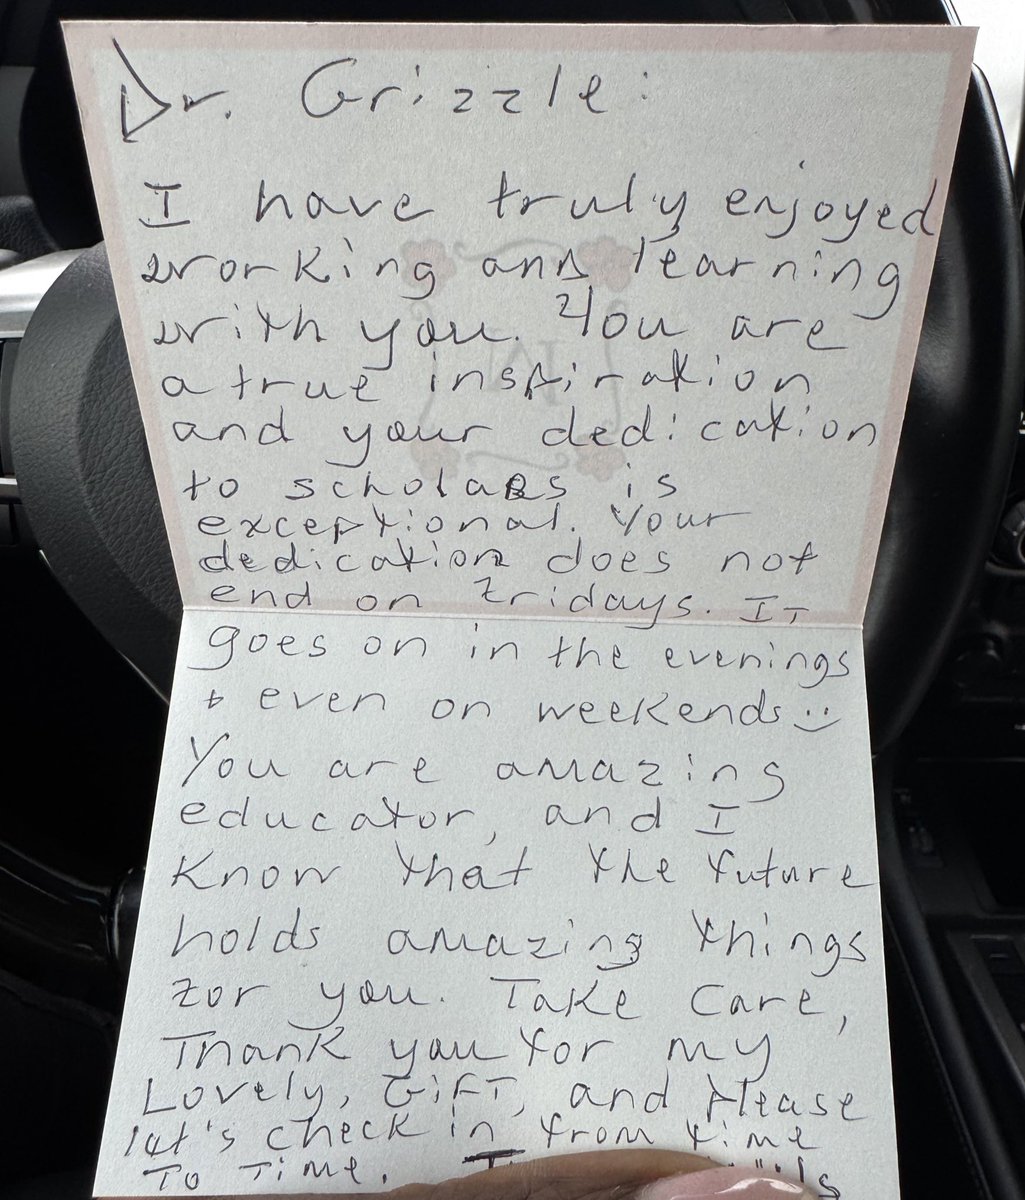 Dr. Grizzle:
I have truly enjoyed
working and learning
with you. You are
a true inspiration
and your dedication
to scholars is
exceptional. Your
dedication does not
end on Fridays. It
goes on in the evenings
+ even on weekends :)
You are amazing
educator, and I
Know that the future
holds amazing things
for you. Take Care,
Thank you for my
Lovely, Gift, and please
let's check in from time
To Time.